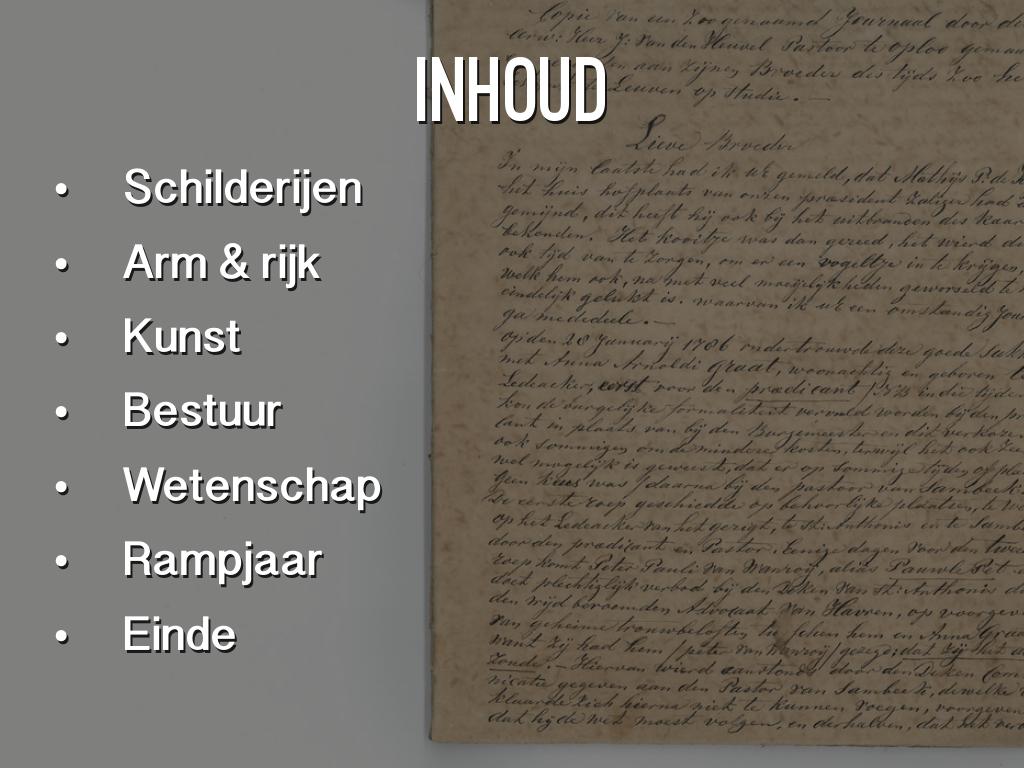 INHOUD
• Schilderijen
• Arm & rijk
• Kunst
• Bestuur
• Wetenschap
• Rampjaar
• Einde
Copie van een Zoogenaamd Journaal door
Heer J: van den Heuvel Pastoor te oploo
aan zijnen Broeder des tijds Zoo
Leuven op studie. —
Lieve Broeder
In mijn laatste had ik UE gemeld, dat Mathijs P. de
het huis hof plaats van onzen præsident Zaliger had
gemijnd, dit heeft hij ook bij het uitbranden des kaar
bekonden. Het kooitje was dan gereed, het wierd
ook tijd van te Zorgen, om er een vogeltje in te krijgen,
welk hem ook, na met veel moeijelijkheden geworsteld te
eindelijk gelukt is. waarvan ik UE een omstandig Jour
ga mededeele. —
Op den 28 Januarij 1786 ondertrouwde deze goede
met Anna Arnoldi Graat, woonachtig en geboren
Ledeacker, eerst voor den prædicant in die tijden
kon de burgelijke formaliteit vervuld worden bij den
in plaats van bij den Burgemeester en dit
ook sommigen om de mindere kosten, terwijl het ook
wel mogelijk is geweest, dat er op sommige tijden of
geen was daarna bij den pastoor van Sambeek
De eerste roep geschiedde op behoorlijke plaatsen, te
op het Ledeacker van het gezigt, te St: Anthonis en te Samb
door den prædicant en Pastor. Eenige dagen voor den twee
roep komt Peter Pauli van Wanroij, alias Pauwls Pet
doet plechtiglijk verbod bij den Deken van St: Anthonis
den wijd beroemden Advocaat van Havren, op voorgev
van geheime trouwbeloften tusschen hem en Anna Graa
want Zij had hem /peter van Wanroij/ gezegd dat zij het
Zonde. — Hiervan wierd aanstonds door den Deken Com
nicatie gegeven aan den Pastor van Sambeek, dewelke
klaarde zich hierna niet te kunnen voegen, voorgeven
dat hij de wet moest volgen, en derhalven, dat het